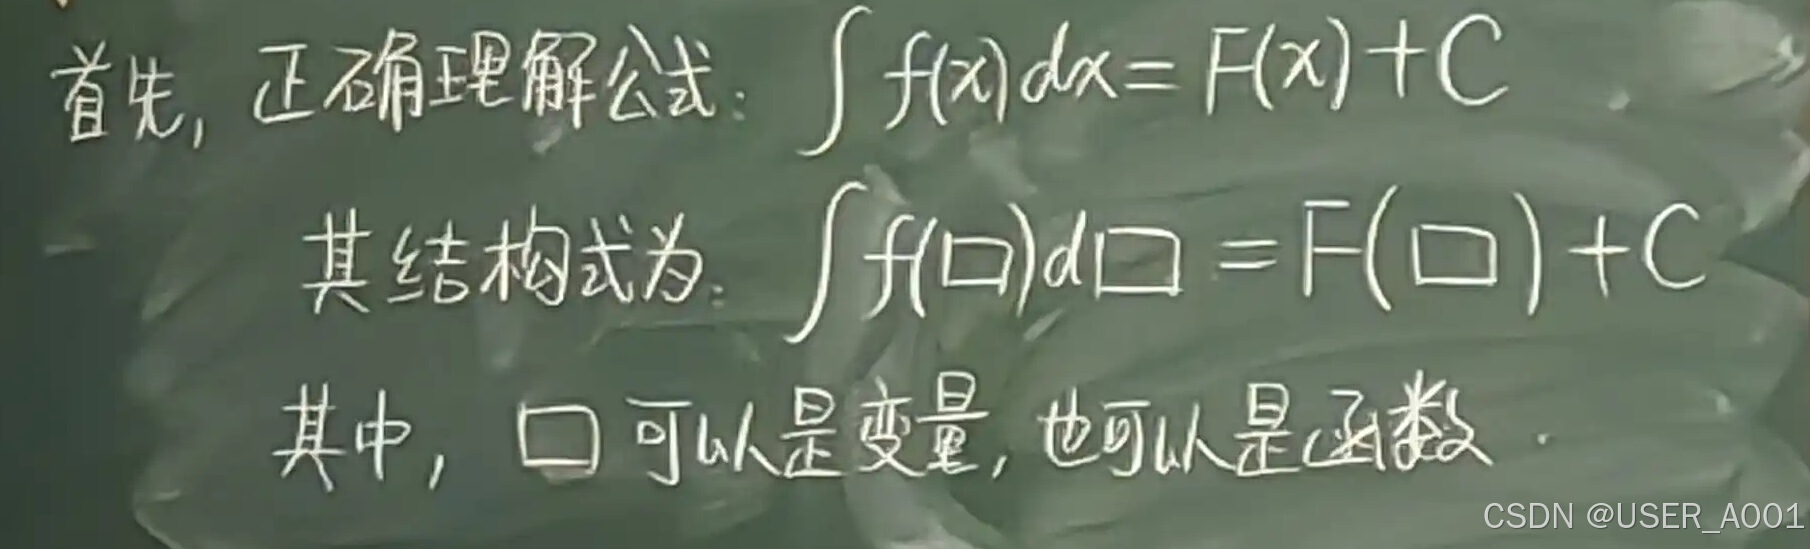 首先, 正确理解公式: ∫ f(x)dx = F(x) + C
其结构式为: ∫ f(□)d□ = F(□) + C
其中, □ 可以是变量, 也可以是函数.
CSDN @USER_A001